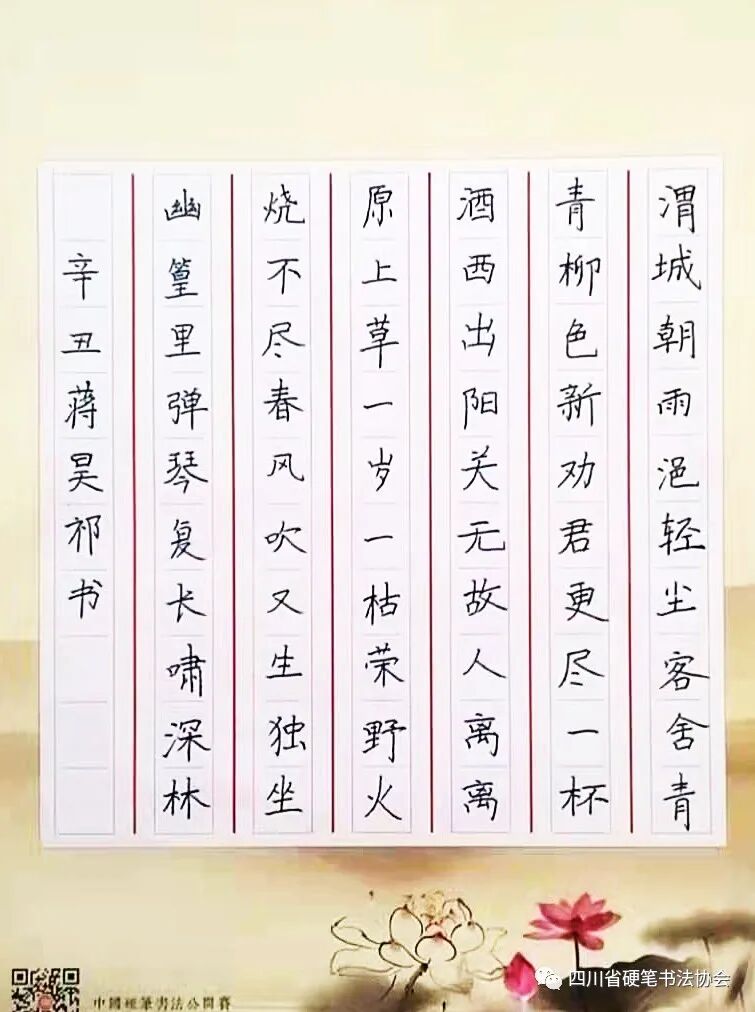 渭城朝雨浥轻尘客舍青
青柳色新劝君更尽一杯
酒西出阳关无故人离离
原上草一岁一枯荣野火
烧不尽春风吹又生独坐
幽篁里弹琴复长啸深林
辛丑蒋昊祁书
中國硬筆書法公開賽
四川省硬笔书法协会